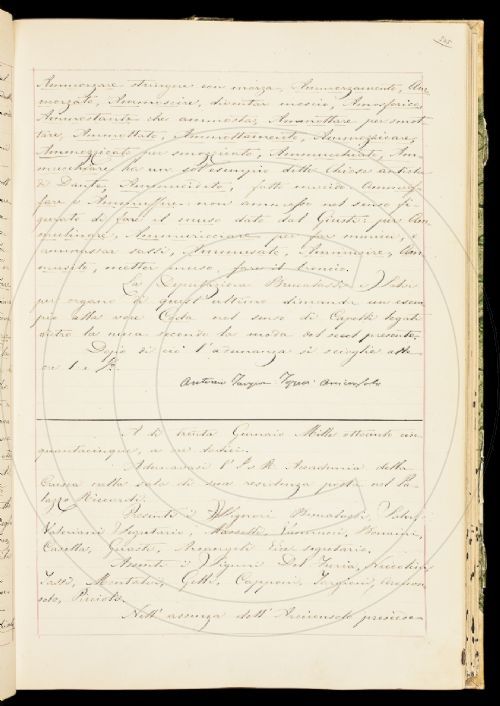 Ammorzare stringere con morza, Ammorzamento, Am-
morzato, Ammoscire, diventar moscio, Amosferico,
Ammostante che ammosta, Ammottare per smot-
tare, Ammottato, Ammottamento, Ammozzicare,
Ammozzicato per smozzicato, Ammucchiato, Am-
mucchiare ha un sol esempio delle Chiose antiche
di Dante, fatto
fare e non ammesso nel senso fi-
gurato di fare il muso dato dal Giusti: per Am-
Ammuricciare per far muricci, e
ammassar sassi, Ammusato, Ammusire, Am-
musito, metter muso, fare il broncio.
La Deputazione e Salvi
per organo di quest'ultimo dimanda un esem-
pio alla voce Coda nel senso di Capelli legati
dietro la nuca secondo la moda del secol presente.
Dopo di ciò l'adunanza si scioglie alle
ore 1 e 1/2.
A dì trenta Gennaio Mille ottocento cin-
quantacinque, a ore dodici.
Adunavasi l'I. e R. Accademia della
Crusca nella sala di sua residenza posta nel Pa-
lazzo Riccardi.
Presenti i Signori Brucalassi, Salvi,
Valeriani Segretario, Masselli, Vannucci, Bonaini,
Casella, Giusti, Arcangeli Vice segretario.
Assenti i Signori Del Furia, Niccolini,
Tassi, Montalvi, Gelli, Capponi, Targioni, Arcicon-
solo,
Nell'assenza dell'Arciconsolo